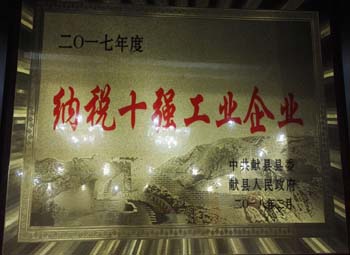 二〇一七年度
纳税十强工业企业
中共献县县委
献县人民政府
二〇一八年二月